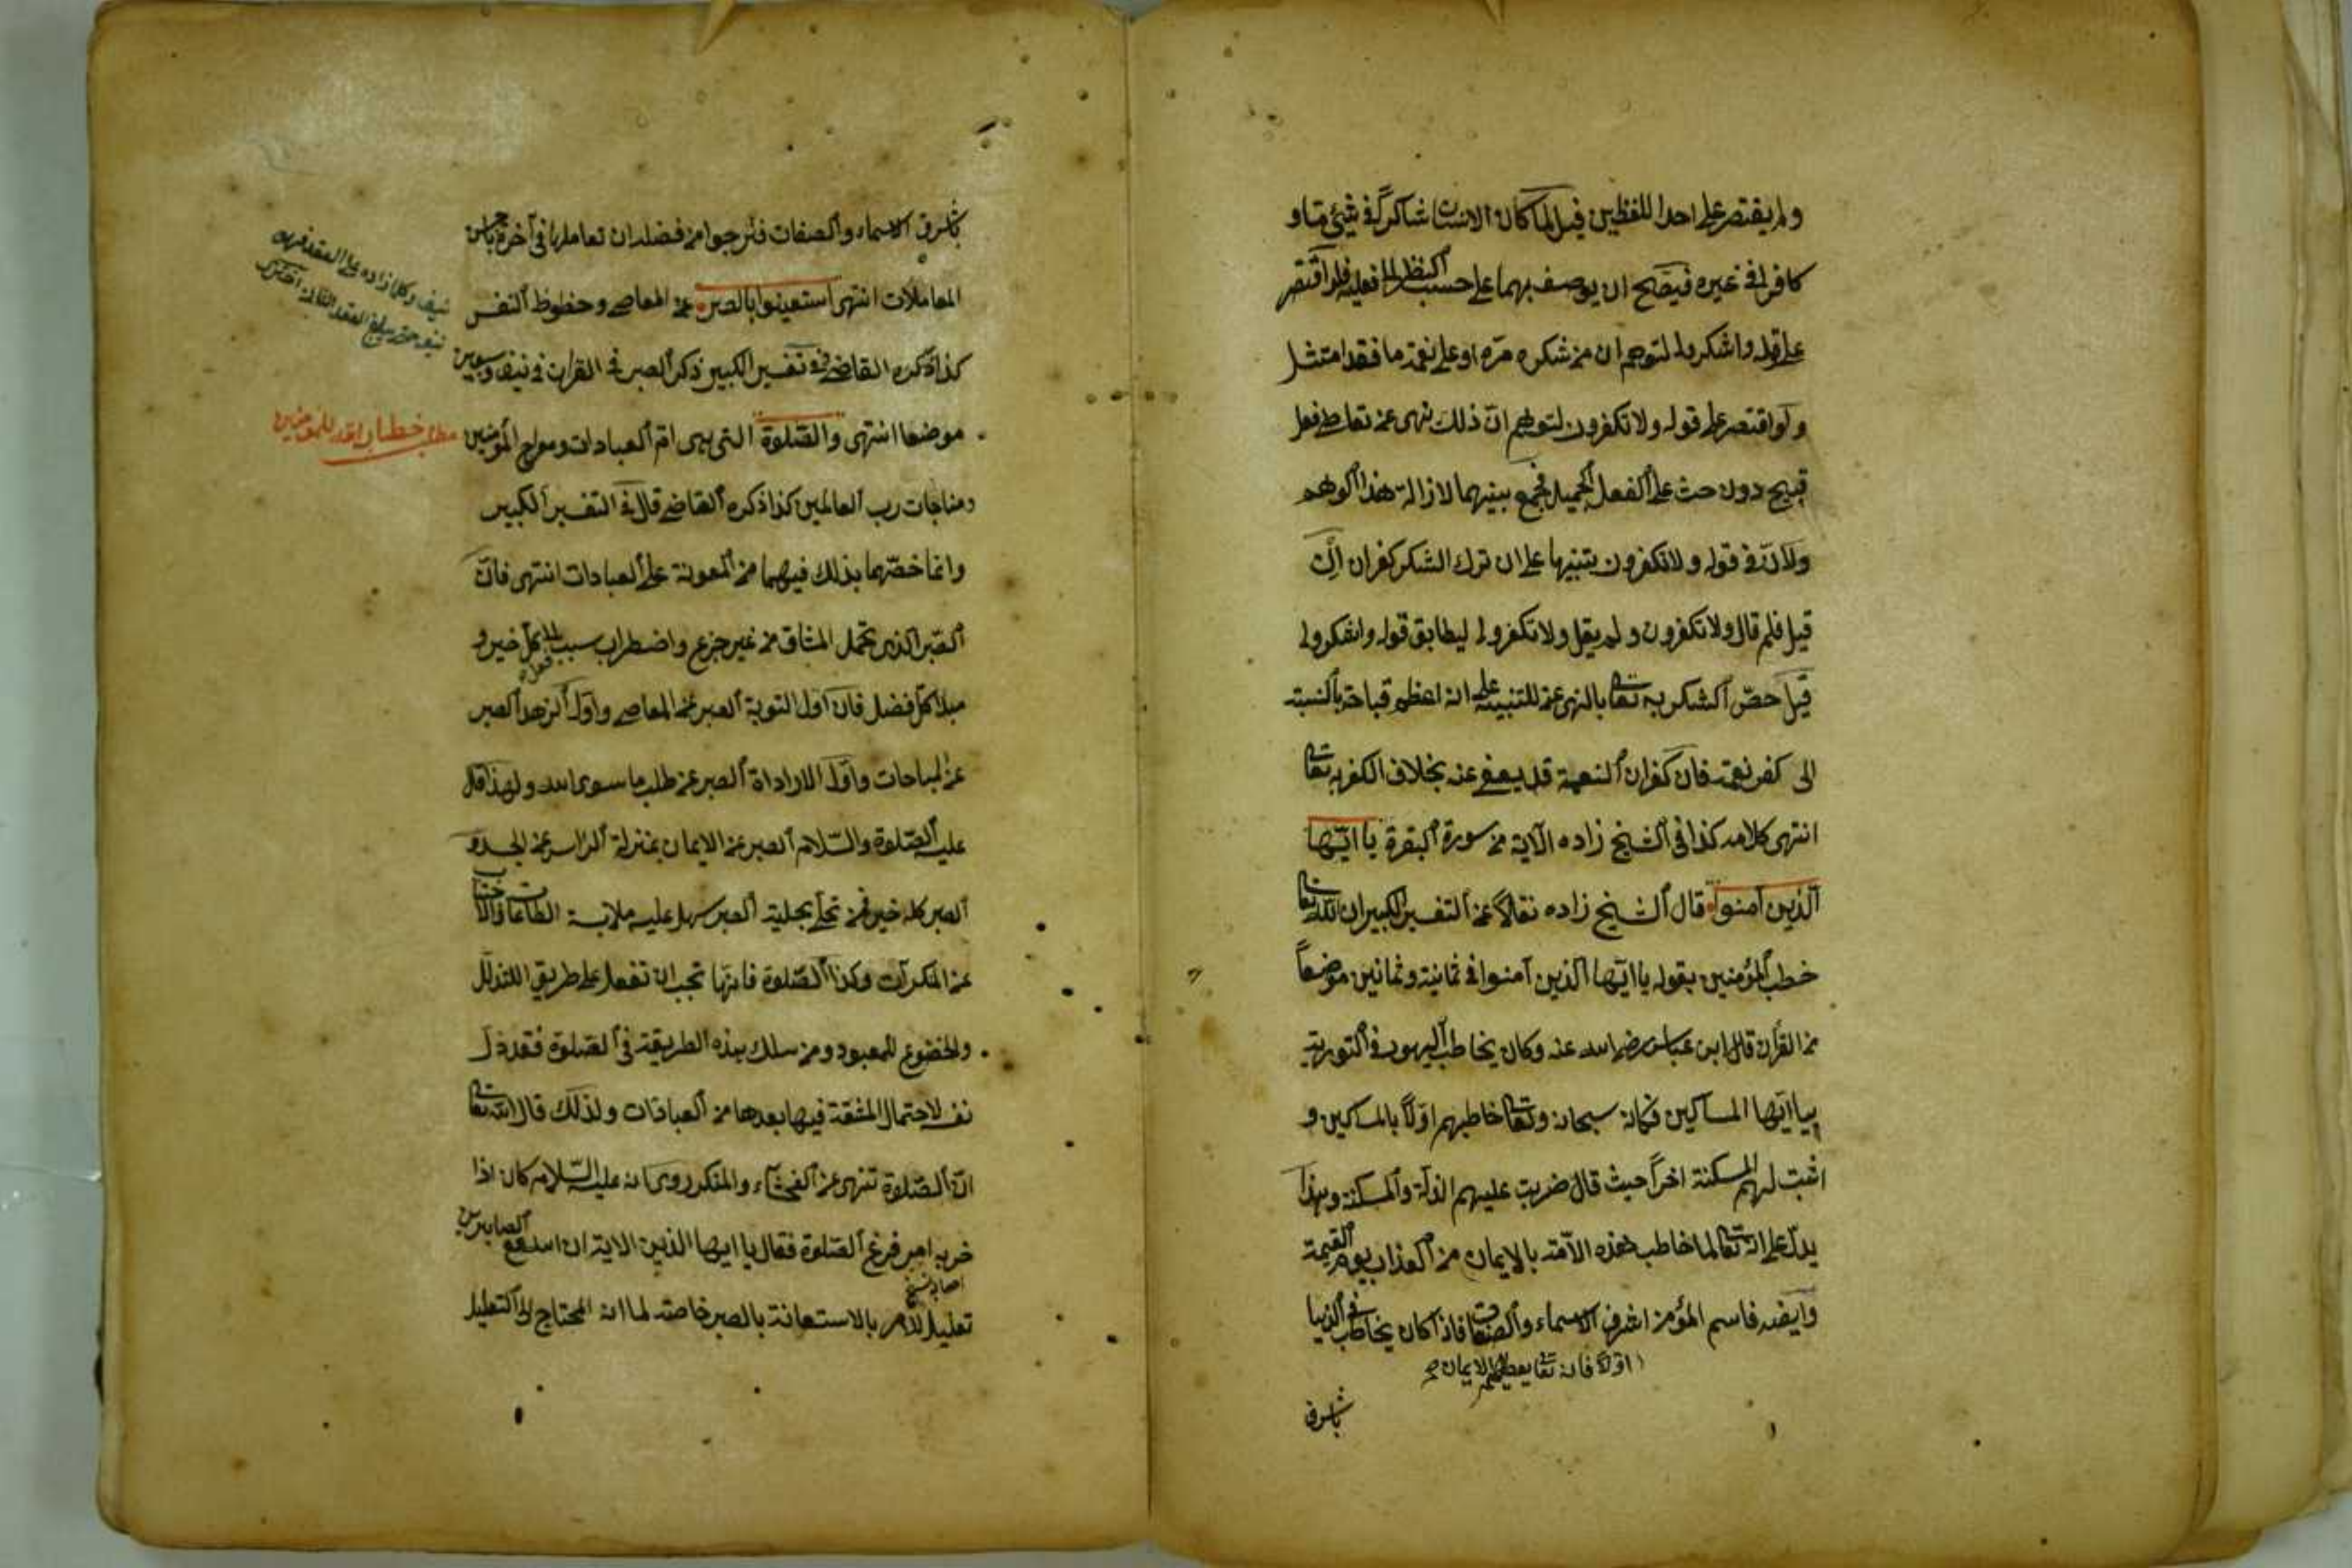 ولم يقتصر على احد اللفظين قيل لما كان الانسان شاكراً في شيئ مّا و
كافرا في غيره فيصح ان يوصف بهما على حسب النظر الى فعليه فلو اقتصر
على قوله واشكروا لى لتوهم ان من شكره مرّه او على نعمة ما فقد امتثل
ولو اقتصر على قوله ولا تكفرون لتوهم انّ ذلك نهى عن تعاطى فعل
قبيح دون حث على الفعل الجميل فجمع بينهما لازالة هذا الوهم
ولانّ في قوله ولا تكفرون تنبيها على ان ترك الشكر كفران
قيل فلم قال ولا تكفرون ولم يقل ولا تكفروا لى ليطابق قوله واشكروا لى
قيل خصّ الشكر به تعالى بالنهى عن للتنبيه على انه اعظم قباحة بالنسبة
الى كفر نعمته فان كفران النعمة قد يعفى عنه بخلاف الكفر به تعالى
انتهى كلامه كذا في الشيخ زاده الآية من سورة البقرة يا ايّها
الذين آمنوا قال الشيخ زاده نقلاً عن التفسير الكبير ان الله تعالى
خطب المؤمنين بقوله يا ايّها الذين آمنوا في ثمانية وثمانين موضعاً
من القرآن قال ابن عباس رضى الله عنه وكان يخاطب اليهود في التورية
بيا ايّها المساكين فكانه سبحانه وتعالى خاطبهم اوّلاً بالمساكين و
اثبت لهم المسكنة اخراً حيث قال ضربت عليهم الذلة والمسكنة وبهذا
يدلّ على انه تعالى لما خاطب هذه الأمّة بالايمان من العذاب يوم القيمة
وايضه فاسم المؤمن اشرف الاسماء والصفات فاذا كان يخاطب في الدنيا
اوّلاً فانه تعالى يعطيهم الايمان
باشرف
باشرف الاسماء والصفات فنرجوا من فضله ان تعاملها في آخرة باحسن
المعاملات انتهى استعينوا بالصبر عن المعاصى وحظوظ النفس
كذا ذكره القاضى في تفسير الكبير ذكر الصبر في القرآن في نيف وسبعين
موضعا انتهى والصّلوة التى هى امّ العبادات ومعراج المؤمنين
ومناجات رب العالمين كذا ذكره القاضى قال في التفسير الكبير
وانما خصّهما بذلك فيهما من المعونة على العبادات انتهى فانّ
الصّبر الذى تحمل المشاق من غير جزع واضطراب سبب لكل فعل خير و
مبدأ كلّ فضل فان اول التوبة الصبر عن المعاصى واوّل الزهد الصبر
عن المباحات واوّل الاراداة الصبر عن طلب ما سوى الله ولهذا قال
عليه الصّلوة والسّلام الصبر عن الايمان بمنزلة الرأس عن الجسد و
الصبر كله خير فمن تحلّى بحلية الصبر سهل عليه ملابسة الطاعات والاجتناب
عن المنكرات وكذا الصّلوة فانها تجب ان تفعل على طريق التذلل
والخضوع للمعبود ومن سلك بهذه الطريقة في الصّلوة فقد ذلّ
نفسه لاحتمال المشقة فيها بعدها من العبادات ولذلك قال الله تعالى
انّ الصّلوة تنهى عن الفحشاء والمنكر روى انه عليه السّلام كان اذا
حزبه امر فرغ الصّلوة فقال يا ايها الذين الاية ان الله مع الصابرين
تعليل للامر بالاستعانة بالصبر خاصة لما انه المحتاج الى التعليل
نيف وكلما زاده على العقد فهو
نيف حتى يبلغ العقد الثانى اختري
مطلب خطاب الله للمؤمنين